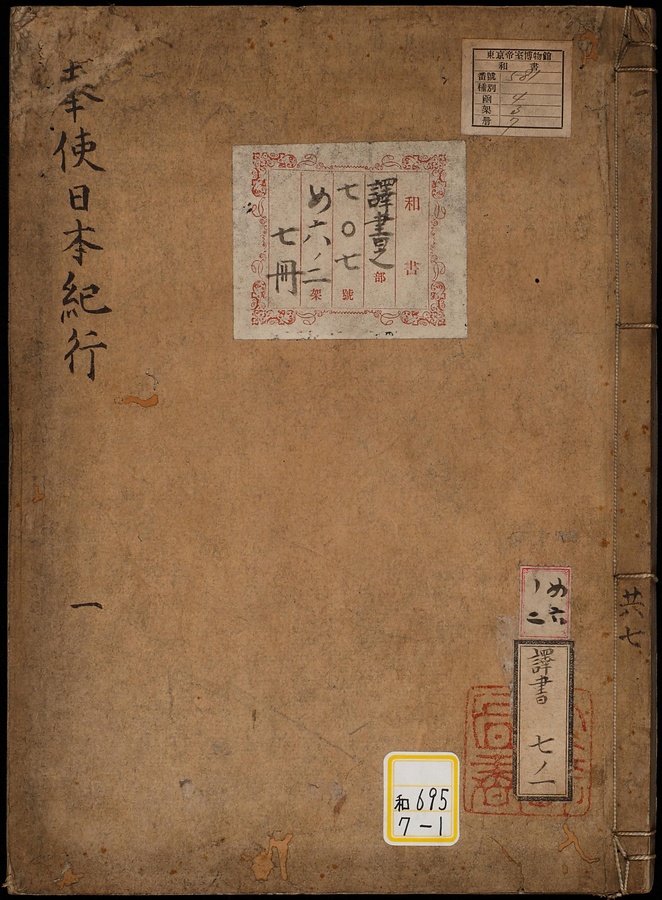 奉使日本紀行
一
東京帝室博物館
和書
番號 587
種別
函 4
架 3
册 7
和書
譯書之部
七〇七號
め六ノ二架
七冊
め六
ノ二
譯書 七ノ一
共七
和 695
7-1